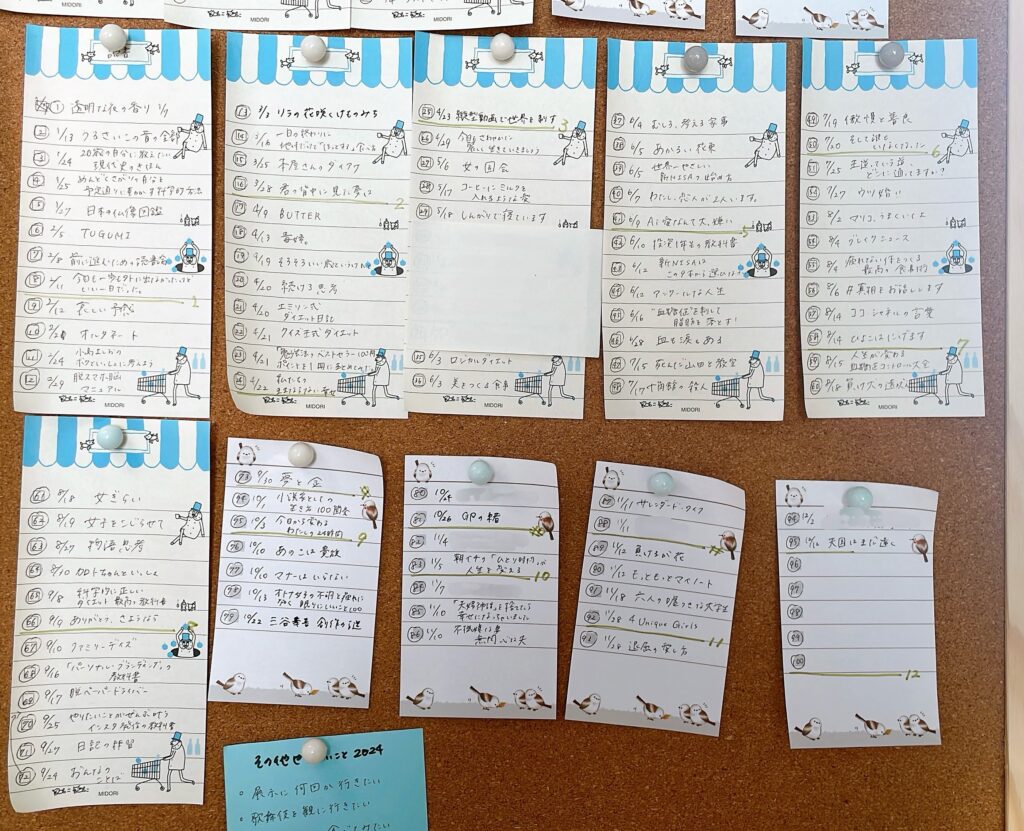 MIDORI
MIDORI
読書
① 透明な夜の香り 1/7
② 1/13 うるさいこの音の全部
③ 1/24 20歳の自分に教えたい
現代史のきほん
④ 1/25 めんどくさがりの自分を
予定通りに動かす科学的方法
⑤ 1/27 日本の仏像図鑑
⑥ 2/5 TUGUMI
⑦ 2/8 前に進むための読書論
⑧ 2/11 今日も一歩も外に出なかったけど
いい一日だった。
1
⑨ 2/12 哀しい予感
⑩ オルタネート
⑪ 2/24 小島よしおの
ボクといっしょに考えよう
⑫ 2/29 脱スマホ脳
マニュアル
MIDORI
⑬ 3/3 リラの花咲くけものみち
⑭ 3/16 一日の終わりに
⑮ 3/25 本屋さんのダイアナ
⑯ 3/28 君の背中に見た夢は
2
⑰ 4/9 BUTTER
⑱ 4/13 毒姉。
⑲ 4/19 そろそろいい歳というけれど
⑳ 4/20 続ける思考
㉑ 4/20 エミリン式
ダイエット日記
㉒ 4/21 クイズ王式ダイエット
㉓ 4/21 「勉強法」のベストセラー100冊の
ポイントを1冊にまとめてみた
㉔ 4/22 私たちの
ままならない幸せ
MIDORI
㉕ 4/23 縦型動画で世界を制す
3
㉖ 4/29 今日もさわやかに
楽しく生きていきましょう
㉗ 5/6 女の国会
㉘ 5/17 コーヒーにミルクを
入れるような愛
㉙ 5/18 しんがりで寝ています
㉟ 6/3 ロジカルダイエット
㊱ 6/3 美をつくる食事
㊲ 6/4 むしろ、考える家事
㊳ 6/5 あかるい花束
㊴ 6/5 世界一やさしい
新NISAの始め方
㊵ 6/7 わたし、恋人が2人います。
㊶ 6/9 Ai 愛なんて大っ嫌い
5
㊷ 6/10 投資1年目の教科書
㊸ 6/12 新NISAは
この9本から選びなさい
㊹ 6/12 アッコールな人生
㊺ 6/16 "血糖値"を制して
脂肪を落とす!
㊻ 6/18 血も涙もある
㊼ 7/15 死んだ山田と教室
㊽ 7/17 十角館の殺人
MIDORI
㊾ 7/19 傲慢と善良
㊿ 7/20 そして誰も
いなくなった
6
51 7/25 王道っていう道、
どこに通ってますか?
52 7/27 ウツ婚!!
53 8/2 マリコ、うまくいくよ
54 8/4 ブレイクニュース
55 8/4 疲れない体をつくる
最高の食事術
56 8/6 #真相をお話しします
57 8/14 ココ・シャネルの言葉
58 8/14 ひよこは にげます
7
59 8/15 人生が変わる
血糖値コントロール大全
60 8/18 負け犬の遠吠え
MIDORI
61 8/18 女ぎらい
62 8/19 女子をこじらせて
63 8/27 物語思考
64 8/30 加トちゃんといっしょ
65 9/8 科学的に正しい
ダイエット最高の教科書
66 9/9 ありがとう、さようなら
67 9/10 ファミリーデイズ
68 9/16 「パーソナル・ブランディング」の
教科書
69 9/17 脱ペーパードライバー
70 9/25 やりたいことがぜんぶ叶う
インスタ発信の教科書
71 9/27 日記の練習
72 9/24 おんなの
ことば
MIDORI
73 9/30 夢と金
74 10/1 小説家としての
生き方100箇条
75 10/3 今日から変わる
わたしの24時間
9
76 10/10 あのこは貴族
77 10/10 マナーはいらない
78 10/13 オトナ女子の不調と疲れに
効く 眠りにいいこと100
79 10/22 三谷幸喜 創作の謎
80 10/24
81 10/26 GPの绪
82 11/4
83 11/5 朝イチの「ひとり時間」が
人生を変える
10
84 11/7
85 11/10 「夫婦神話」を捨てたら
幸せになっちゃいました
86 11/10 不倫婦は車
無関心は夫
87 11/11 サレンダード・ワイフ
88 11/1
89 11/12 負けるが花
90 11/12 もっともっとマイノート
91 11/18 六人の嘘つきな大学生
92 11/28 4 Unique Girls
11
93 11/28 退屈の愛し方
94 12/2
95 12/12 天国はまだ遠く
96
97
98
99
100
12
2024
• 展示に何回か行きたい
• 歌舞伎を観に行きたい